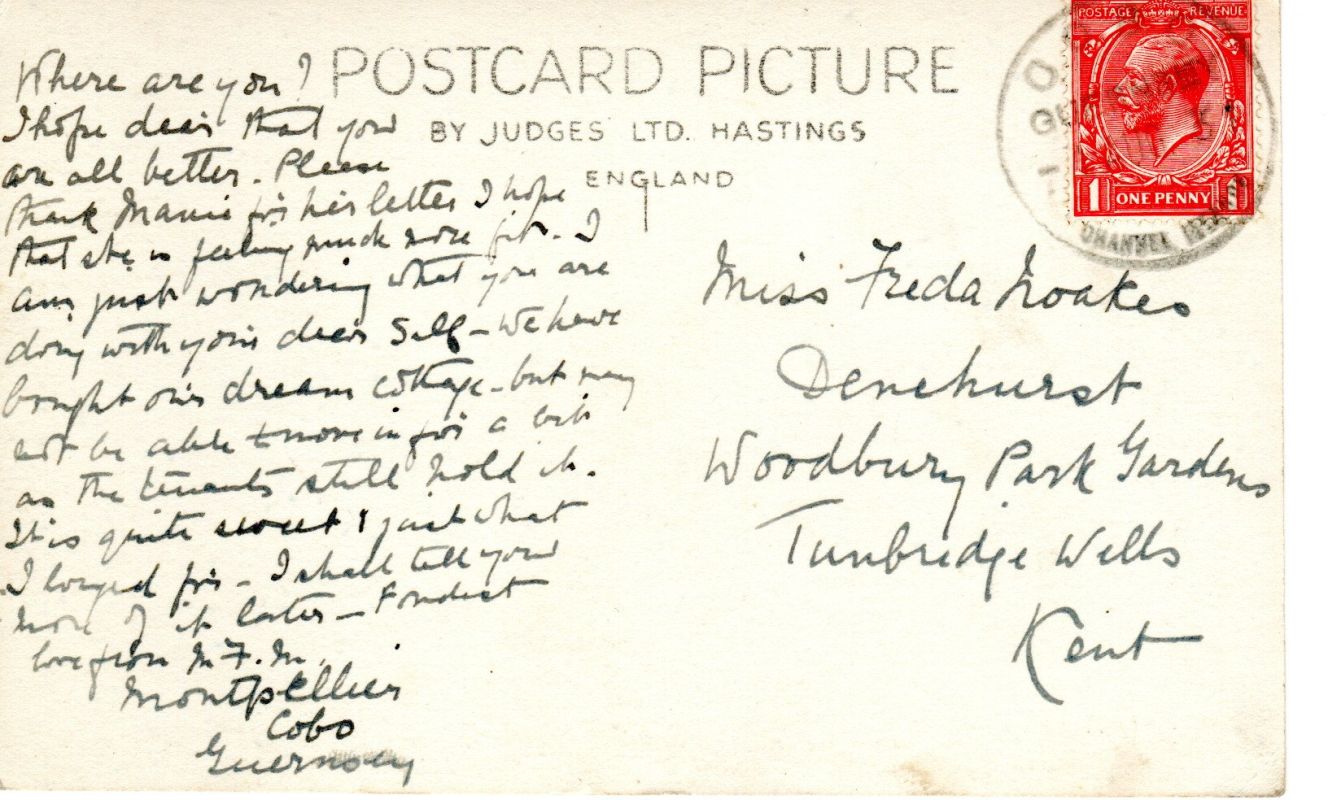 POSTCARD PICTURE
BY JUDGES LTD. HASTINGS
ENGLAND
POSTAGE REVENUE
1 ONE PENNY 1
CHANNEL
Where are you?
I hope dear that you
are all better. Please
thank Mamie for her letter I hope
that she is feeling much more fit. I
am just wondering what you are
doing with your dear Self - We have
bought our dream cottage - but may
not be able to move in for a bit
as the tenants still hold it.
It is quite sweet & just what
I longed for - I shall tell you
more of it later - Fondest
love from M.F.M.
Montpellier
Cobo
Guernsey
Miss Freda Noakes
Denehurst
Woodbury Park Gardens
Tunbridge Wells
Kent